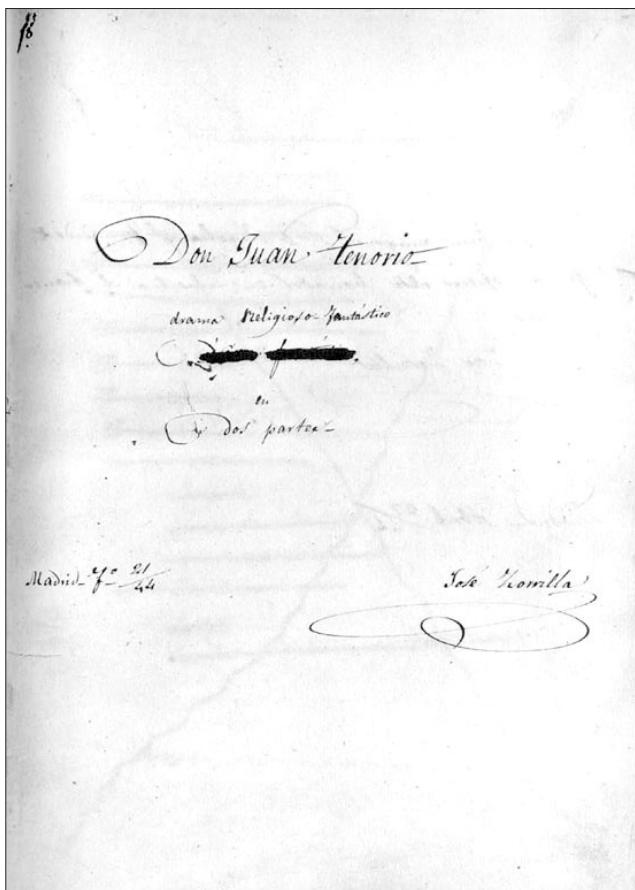 Don Juan Tenorio
drama Religioso-fantástico
en
dos partes
Madrid
21
44
José Zorrilla